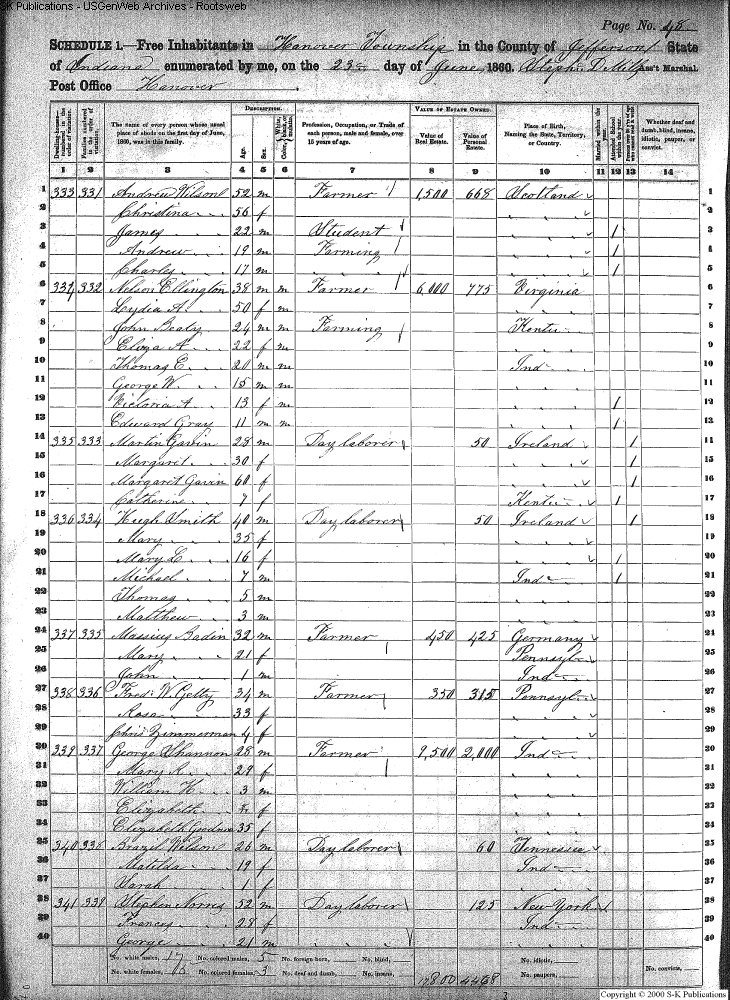 S-K Publications - USGenWeb Archives - Rootsweb
Page No. 48
SCHEDULE 1.—Free Inhabitants in Hanover Township in the County of Jefferson State
of Indiana enumerated by me, on the 23 day of June 1860. Ass't Marshal.
Post Office Hanover
DESCRIPTION. VALUE OF ESTATE OWNED.
Dwelling-houses—numbered in the order of visitation. Families numbered in the order of visitation. The name of every person whose usual place of abode on the first day of June, 1860, was in this family. Age. Sex. Color, White, black, or mulatto. Profession, Occupation, or Trade of each person, male and female, over 15 years of age. Value of Real Estate. Value of Personal Estate. Place of Birth, Naming the State, Territory, or Country. Married within the year. Attended School within the year. Persons over 20 y'rs of age who cannot read & write. Whether deaf and dumb, blind, insane, idiotic, pauper, or convict.
1 2 3 4 5 6 7 8 9 10 11 12 13 14
1 333 331 Andrew Wilson 52 m Farmer 1,500 668 Scotland 1
2 Christina 56 f 2
3 James 22 m Student / 3
4 Andrew 19 m Farming / 4
5 Charles 17 m / 5
6 334 332 Nelson Ellington 38 m m Farmer 6,000 775 Virginia 6
7 Lydia A. 50 f m 7
8 John Bealy 24 m m Farming Kentu 8
9 Eliza A 22 f m 9
10 Thomas C. 20 m m Ind 10
11 George W. 15 m m 11
12 Victoria A 13 f m / 12
13 Edward Gray 11 m m / 13
14 335 333 Martin Gavin 28 m Day laborer 50 Ireland / 11
15 Margaret 30 f / 15
16 Margaret Gavin 60 f / 16
17 Catherine 7 f Kentu / 17
18 336 334 Hugh Smith 40 m Day laborer 50 Ireland / 18
19 Mary 35 f 19
20 Mary E. 16 f / 20
21 Michael 7 m Ind / 21
22 Thomas 5 m 22
23 Matthew 3 m 23
24 337 335 Massius Badin 32 m Farmer 450 425 Germany 24
25 Mary 21 f Pennsyl 25
26 John 1 m Ind 26
27 338 336 Fred. W. Getty 34 m Farmer 350 315 Pennsyl 27
28 Rosa 33 f 28
29 Chris Zimmerman 4 f 29
30 339 337 George Shannon 28 m Farmer 9,500 2,000 Ind 30
31 Mary R. 29 f 31
32 William H. 3 m 32
33 Elizabeth f 33
34 Elizabeth 35 f 34
35 340 338 Brazil Wilson 26 m Day laborer 60 Tennessee 35
36 Matilda 19 f Ind 36
37 Sarah 1 f 37
38 341 339 Stephen Norris 52 m Day laborer 125 New York 38
39 Frances 28 f Ind 39
40 George 21 m 40
No. white males, 17 No. colored males, 5 No. foreign born, No. blind, No. idiotic,
No. white females, No. colored females, 3 No. deaf and dumb, No. insane, 17800 4468 No. paupers, No. convicts,
3
Copyright © 2000 S-K Publications